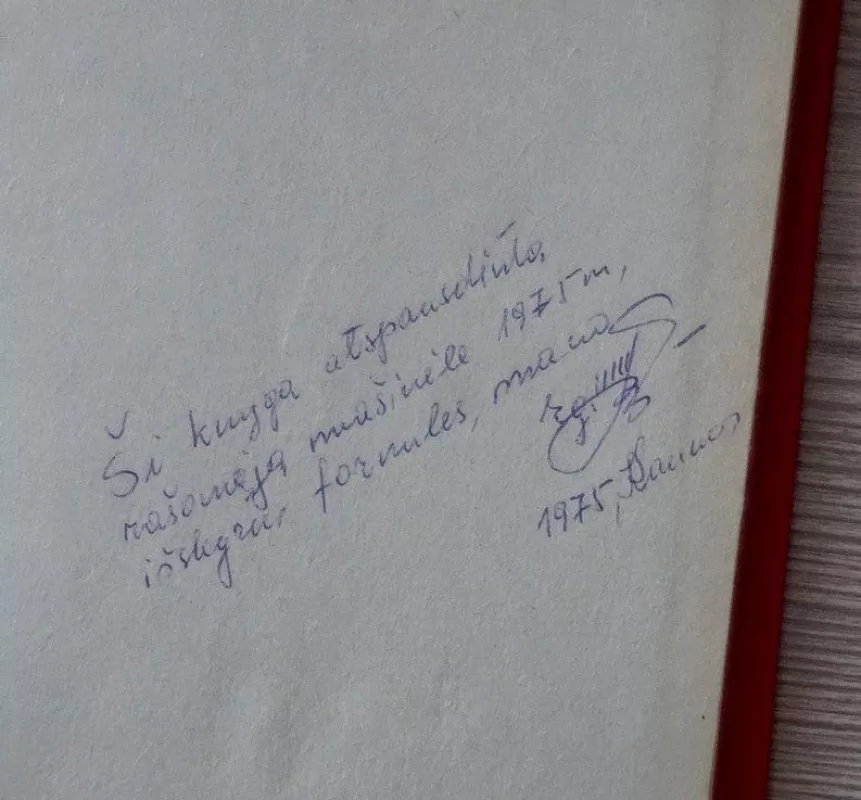 Ši knyga atspausdinta
rašomąja mašinėle 1975 m,
išskyrus formules, mano
1975, Kaunas